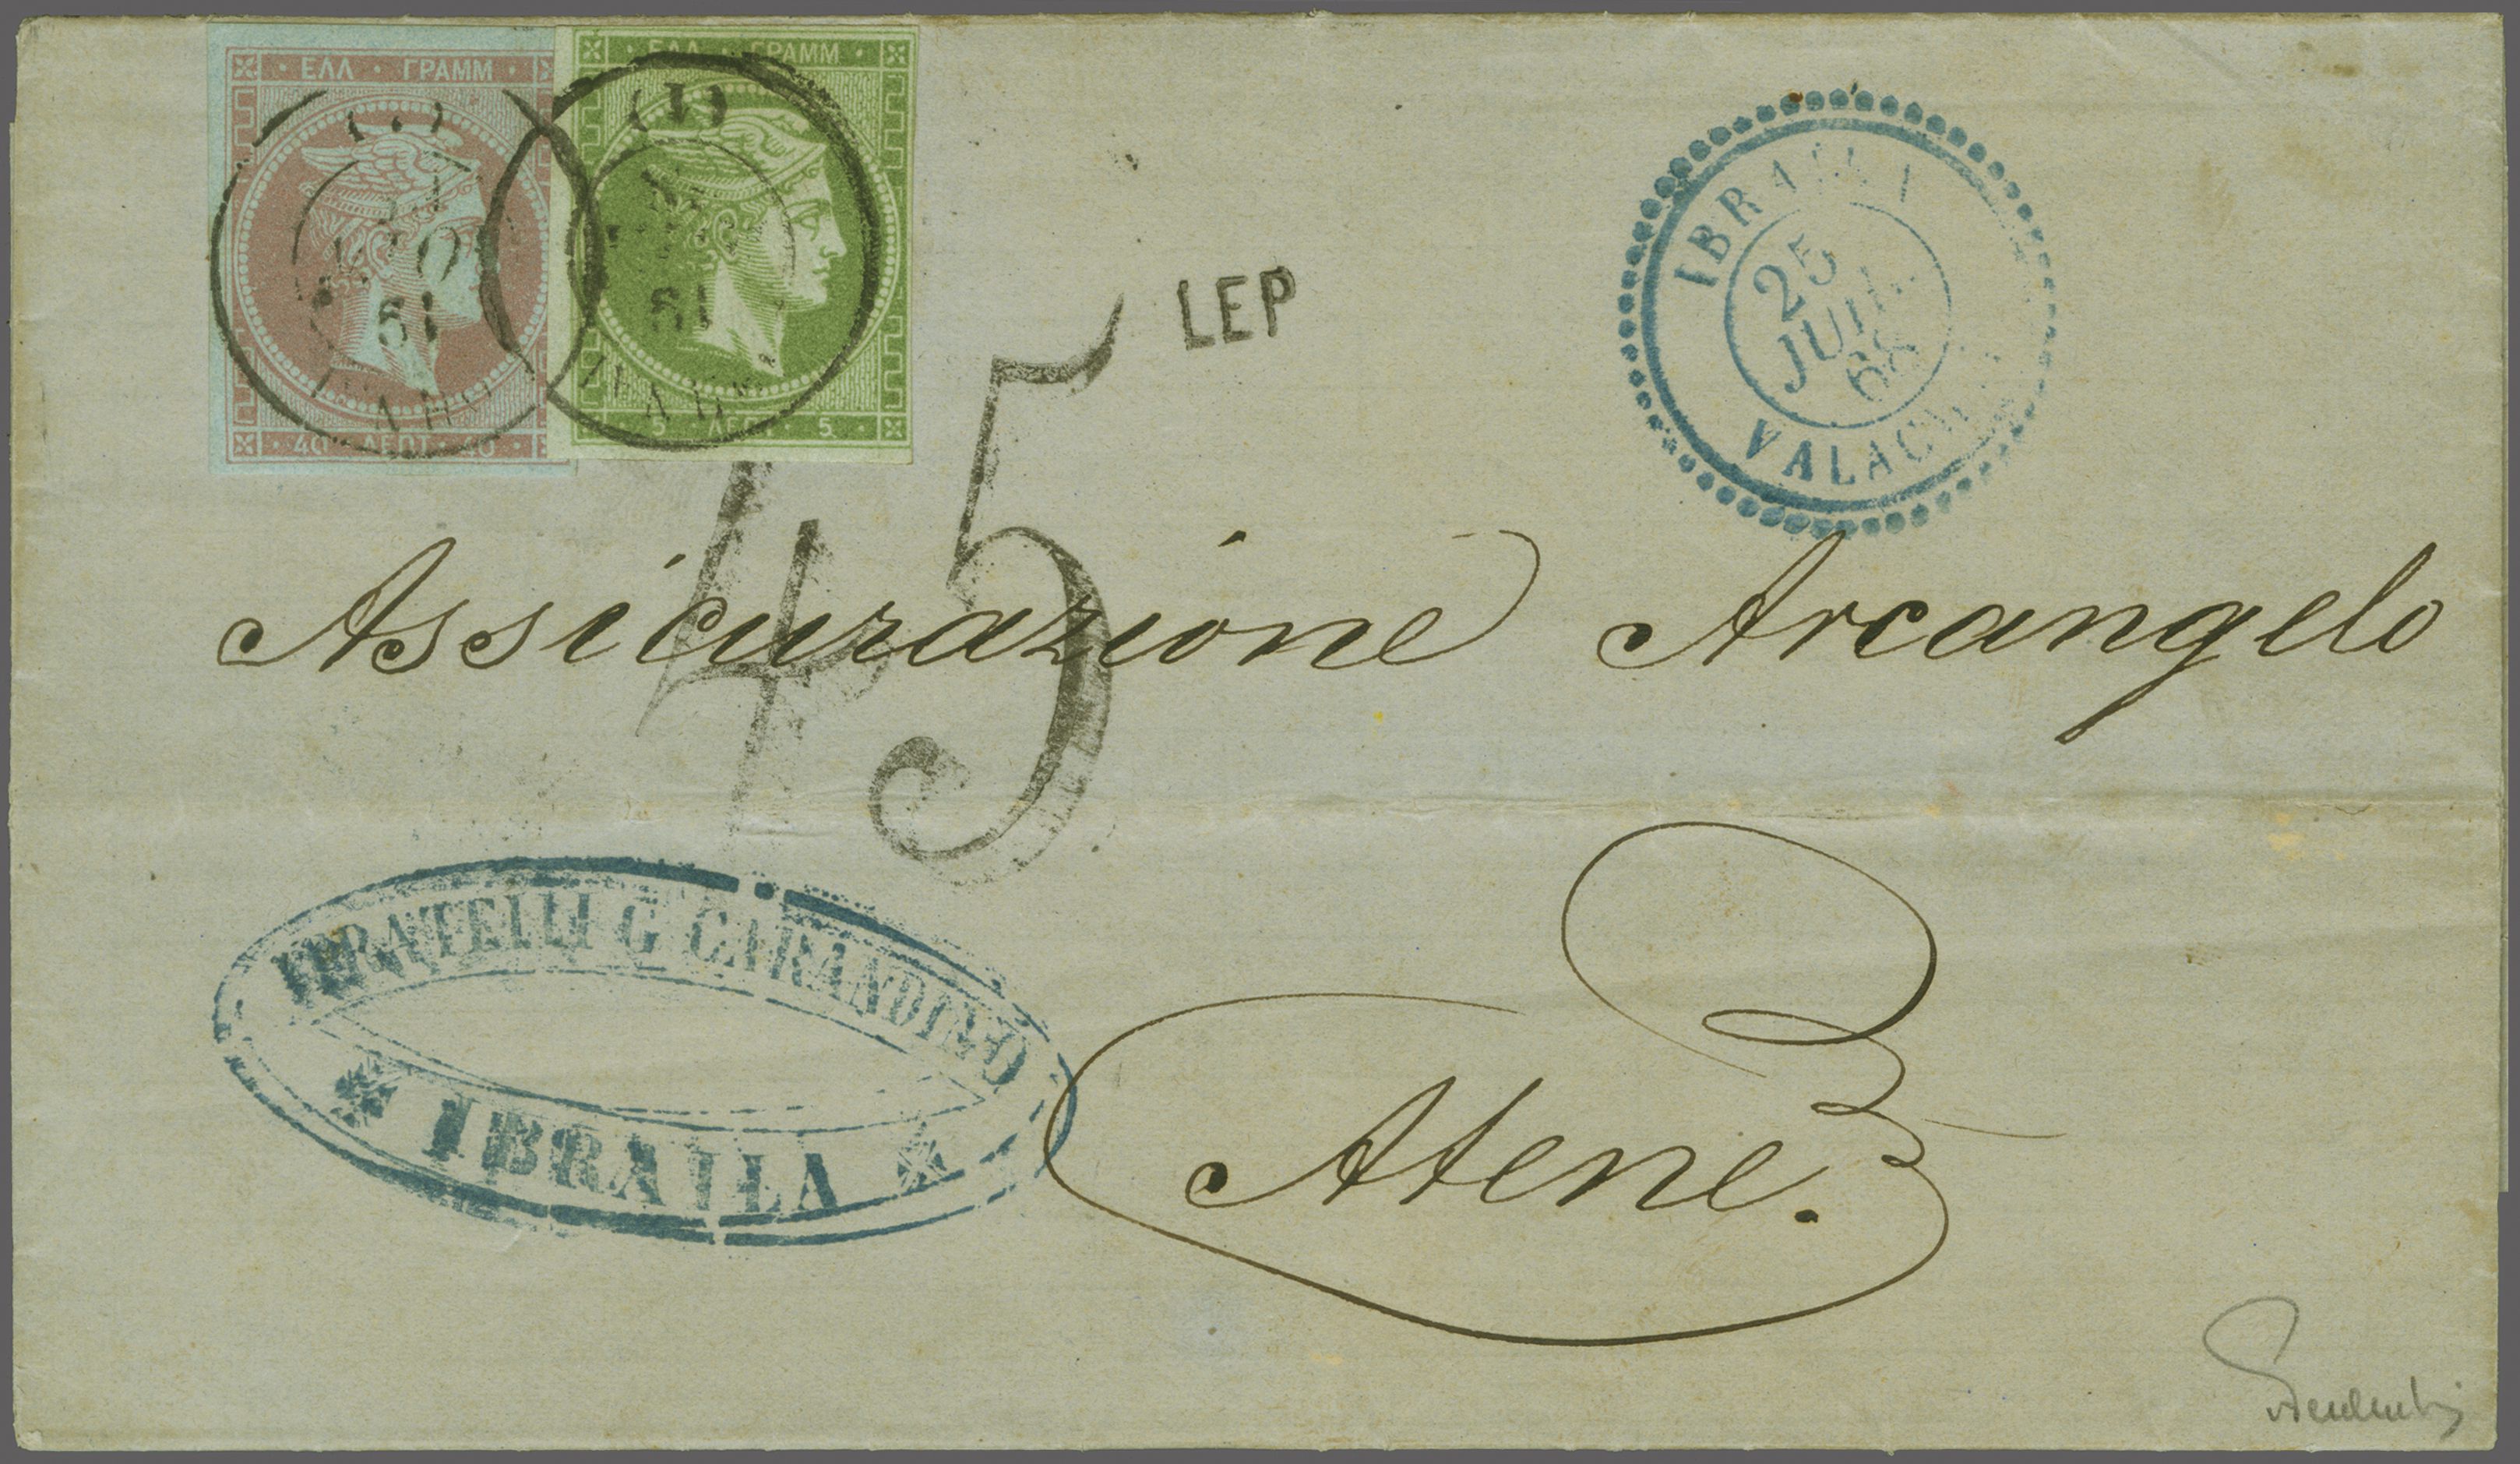 ΕΛΛ · ΓΡΑΜΜ
40 ΛΕΠΤ 40
ΕΛΛ · ΓΡΑΜΜ
5 · ΛΕΠ · 5
(1)
61
61
45
LEP
IBRAILA
25
JUIL.
68
VALACHIE
Assicurazione Arcangelo
FRATELLI G CARANDINO
IBRAILA
Atene.